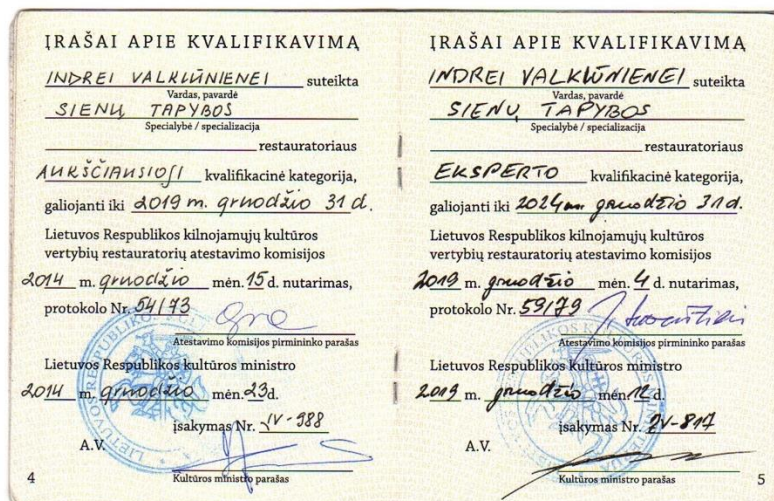 ĮRAŠAI APIE KVALIFIKAVIMĄ
INDREI VALKIŪNIENEI suteikta
Vardas, pavardė
SIENŲ TAPYBOS
Specialybė / specializacija
restauratoriaus
AUKŠČIAUSIOJI kvalifikacinė kategorija,
galiojanti iki 2019 m. gruodžio 31 d.
Lietuvos Respublikos kilnojamųjų kultūros
vertybių restauratorių atestavimo komisijos
2014 m. gruodžio mėn. 15 d. nutarimas,
protokolo Nr. 54/73
Atestavimo komisijos pirmininko parašas
Lietuvos Respublikos kultūros ministro
2014 m. gruodžio mėn. 23 d.
įsakymas Nr. ĮV-988
A.V.
Kultūros ministro parašas
4
ĮRAŠAI APIE KVALIFIKAVIMĄ
INDREI VALKIŪNIENEI suteikta
Vardas, pavardė
SIENŲ TAPYBOS
Specialybė / specializacija
restauratoriaus
EKSPERTO kvalifikacinė kategorija,
galiojanti iki 2024 m. gruodžio 31 d.
Lietuvos Respublikos kilnojamųjų kultūros
vertybių restauratorių atestavimo komisijos
2019 m. gruodžio mėn. 4 d. nutarimas,
protokolo Nr. 59/79
Atestavimo komisijos pirmininko parašas
Lietuvos Respublikos kultūros ministro
2019 m. gruodžio mėn. 12 d.
įsakymas Nr. ĮV-817
A.V.
Kultūros ministro parašas
5